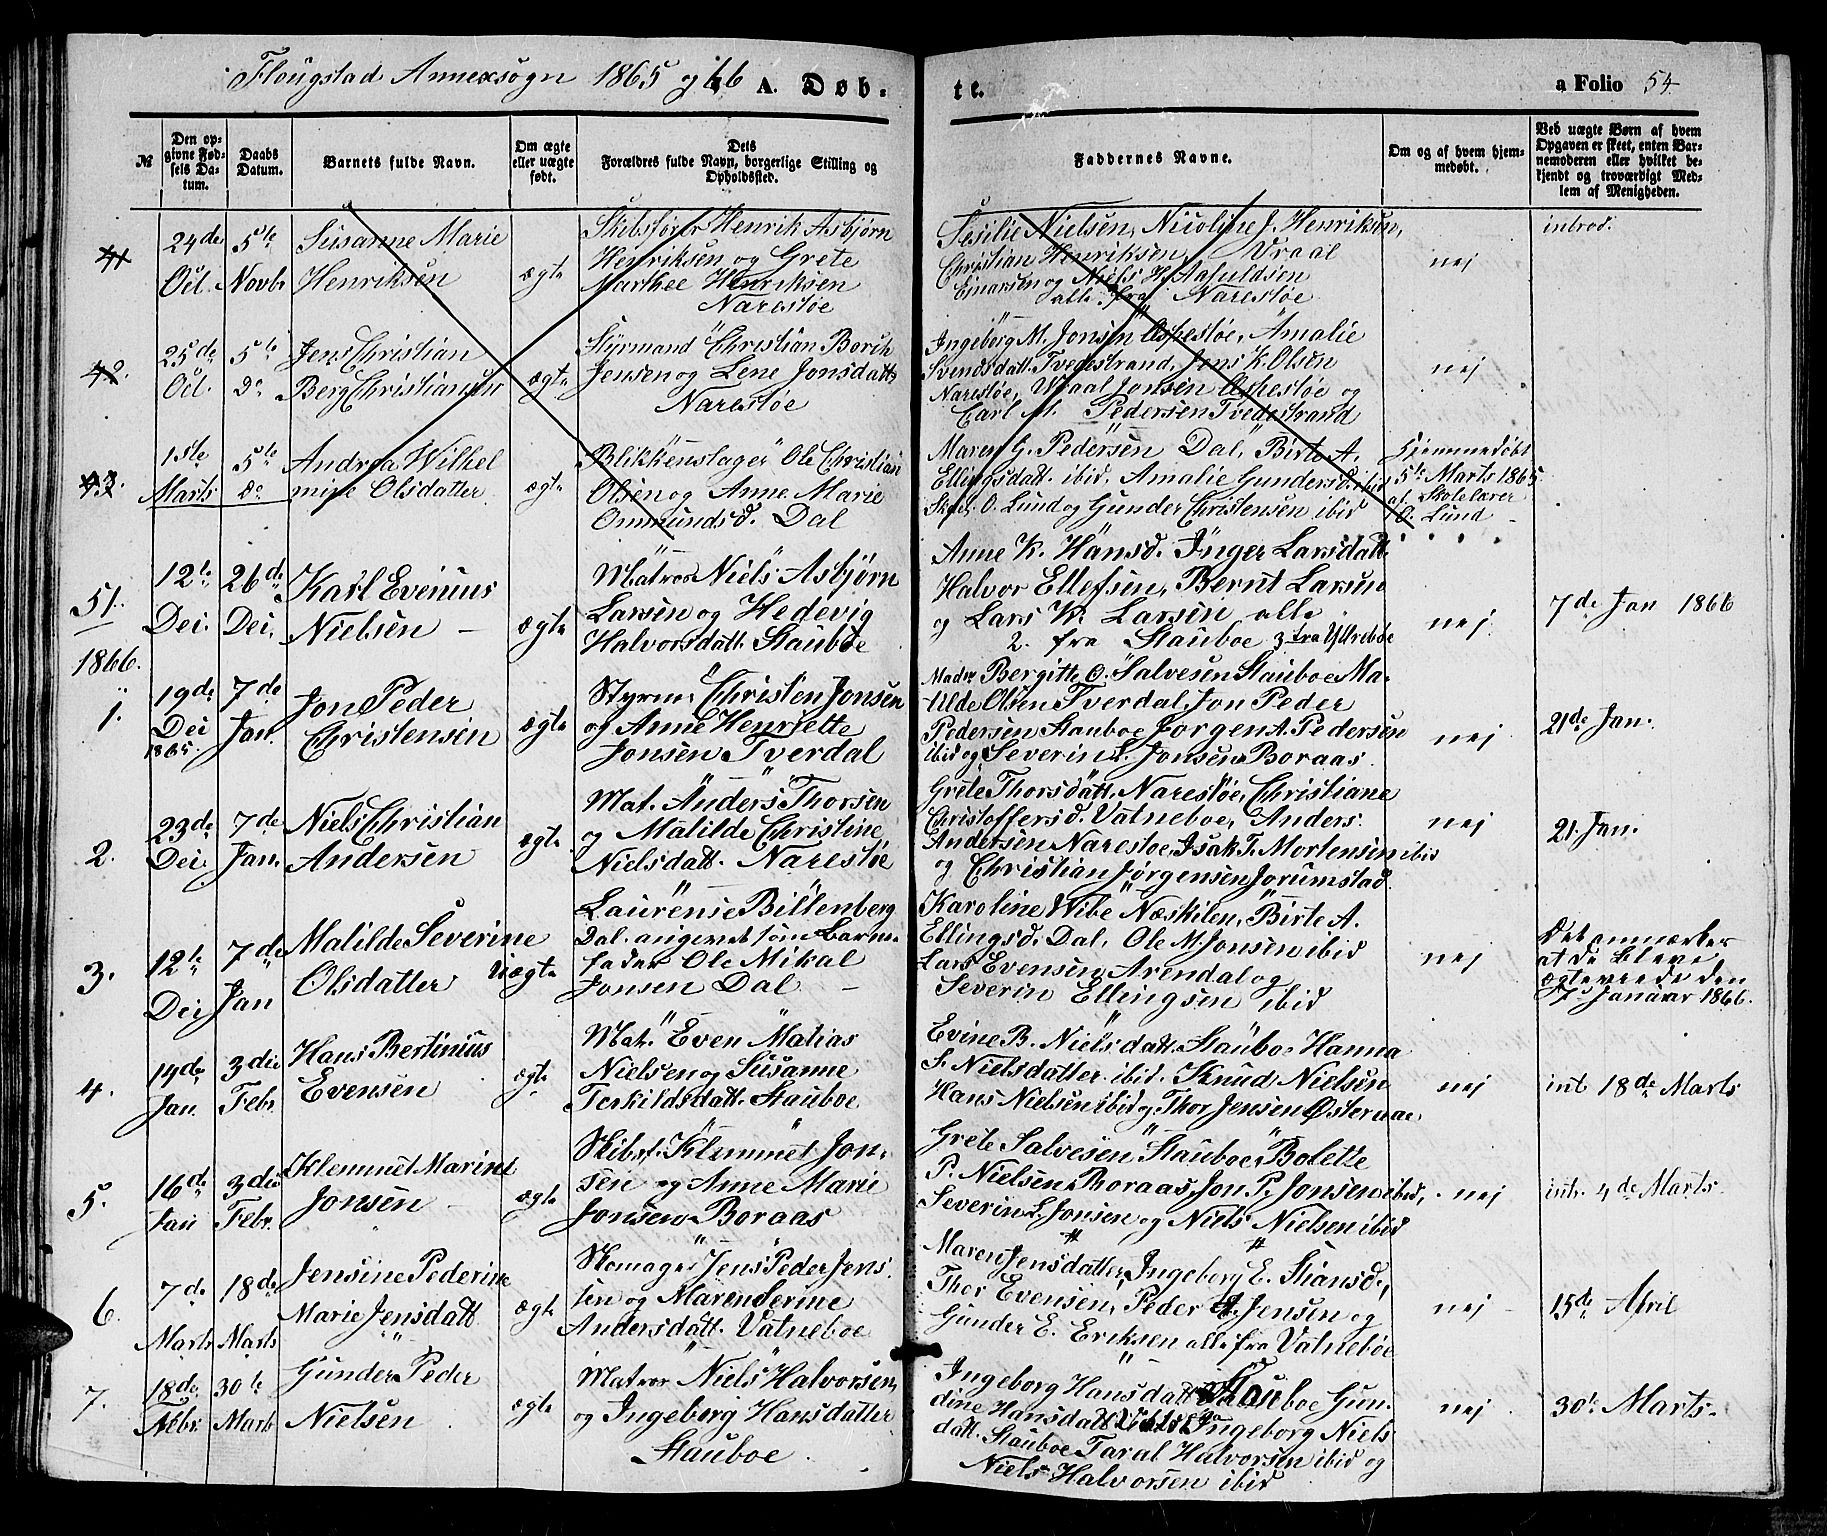 Flougstad Annexsogn 1865 og 66 A. Døb-
te.
a Folio 54.
№
Den op-
givne Fød-
sels Da-
tum.
Daabs
Datum.
Barnets fulde Navn.
Om ægte
eller uægte
født.
Dels
Forældres fulde Navn, borgerlige Stilling og
Opholdssted.
Faddernes Navne.
Om og af hvem hjem-
medøbt.
Ved uægte Børn af hvem
Opgaven er skeet, enten Bar-
nemoderen eller hvilket be-
kjendt og troværdigt Med-
lem af Menigheden.
41
24de
Oct.
5te
Novbr
Susanne Marie
Henriksen
ægte
Skibsfører Henrik Asbjørn
Henriksen og Grete
Marthee Henriksen
Narestøe
Sesilie Nielsen, Nicoline J. Henriksen,
Christian Henriksen, Vraal
Einarsen og Niels H. Aafuldsen
alle fra Narestøe
nej
introd.
42.
25de
Oct.
5te
do
Jens Christian
Berg Christiansen
ægte
Styrmand Christian Borik
Jensen og Lene Jonsdatt.
Narestøe
Ingeborg M. Jonsen Aspestøe, Amalie
Svendsdatt. Tvedestrand, Jens K. Olsen
Narestøe, Vraal Jonsen Aspestøe og
Carl M. Pedersen Tvedestrand
nej
43.
1ste
Marts
5te
do
Andrea Wilhel
mine Olsdatter
ægte
Blikkenslager Ole Christian
Olsen og Anne Marie
Ommundsd. Dal
Maren G. Pedersen Dal, Birte A.
Ellingsdatt. ibid, Amalie Gundersd. ibid
Skol. O. Lund og Gunder Christensen ibid
Hjemmedøbt
5te Marts 1865
af Skolelærer
O. Lund
51.
12te
Dec.
26de
Dec.
Karl Evenius
Nielsen
ægte
Matros Niels Asbjørn
Larsen og Hedevig
Halvorsdatt. Stauboe
Anne K. Hansd. Inger Larsdatt.
Halvor Ellefsen, Bernt Larsen
og Lars K. Larsen alle
2. fra Stauboe 3 fra Yttreboe
nej.
7de Jan 1866
1866.
1.
19de
Dec
1865.
7de
Jan.
Jon Peder
Christensen
ægte
Styrm. Christen Jonsen
og Anne Henriette
Jonsen Tverdal
Mada Bergitte O. Salvesen Stauboe Ma-
tilde Olsen Tverdal, Jon Peder
Pedersen Stauboe Jørgen A. Pedersen
ibid og Severin L. Jonsen Boraas
nej
21de Jan.
2.
23de
Dec.
7de
Jan.
Niels Christian
Andersen
ægte
Mat. Anders Thorsen
og Matilde Christine
Nielsdatt. Narestøe
Grete Thorsdatt. Narestøe, Christiane
Christoffersd. Vatneboe, Anders
Andersen Narestøe, Isak T. Mortensen ibid
og Christian Jørgensen Jorumstad.
nej
21. Jan.
3.
12te
Dec
7de
Jan
Matilde Severine
Olsdatter
Uægte
Laurense Biltenberg
Dal. angivet som Barne-
fader Ole Mikal
Jonsen Dal
Karoline Wibe Næskilen, Birte A.
Ellingsd. Dal, Ole M. Jonsen ibid
Lars Evensen Arendal og
Severin Ellingsen ibid
nej
Det anmærkes
at de bleve
ægteviede den
7de Januar 1866.
4.
19de
Jan
3die
Febr.
Hans Bertinius
Evensen
ægte
Mat. Even Matias
Nielsen og Susanne
Terkildsdatt. Stauboe
Evine B. Nielsdatt. Stauboe Hanna
S. Nielsdatter ibid. Knud Nielsen
Hans Nielsen ibid og Thor Jensen
nej
int 18de Marts
5.
16de
Jan
3die
Febr.
Klemmet Marine
Jonsen
ægte
Skibsf. Klemmet Jon-
sen og Anne Marie
Jonsen Boraas
Grete Salvesen Stauboe, Bolette
P. Nielsen Boraas, Jon P. Jonsen ibid,
Severin L. Jonsen og Niels Nielsen ibid
nej
int. 4de Marts
6.
7de
Marts
18de
Marts
Jensine Pederine
Marie Jensdatt
ægte
Skomager Jens Peder Jens
sen og Maren Serine
Andersdatt. Vatneboe
Maren Jensdatter, Ingeborg E. Stiansd.,
Thor Evensen, Peder A. Jensen og
Gunder E. Eriksen alle fra Vatneboe
nej
15de April
7.
18de
Febr.
30te
Marts
Gunder Peder
Nielsen
ægte
Matros Niels Halvorsen,
og Ingeborg Hansdatter
Stauboe
Ingeborg Hansdatt. Stauboe Gun-
dine Hansdatt. Ingeborg Niels
datt. Stauboe Taral Halvorsen ibid og
Niels Halvorsen ibid
nej
30te Marts